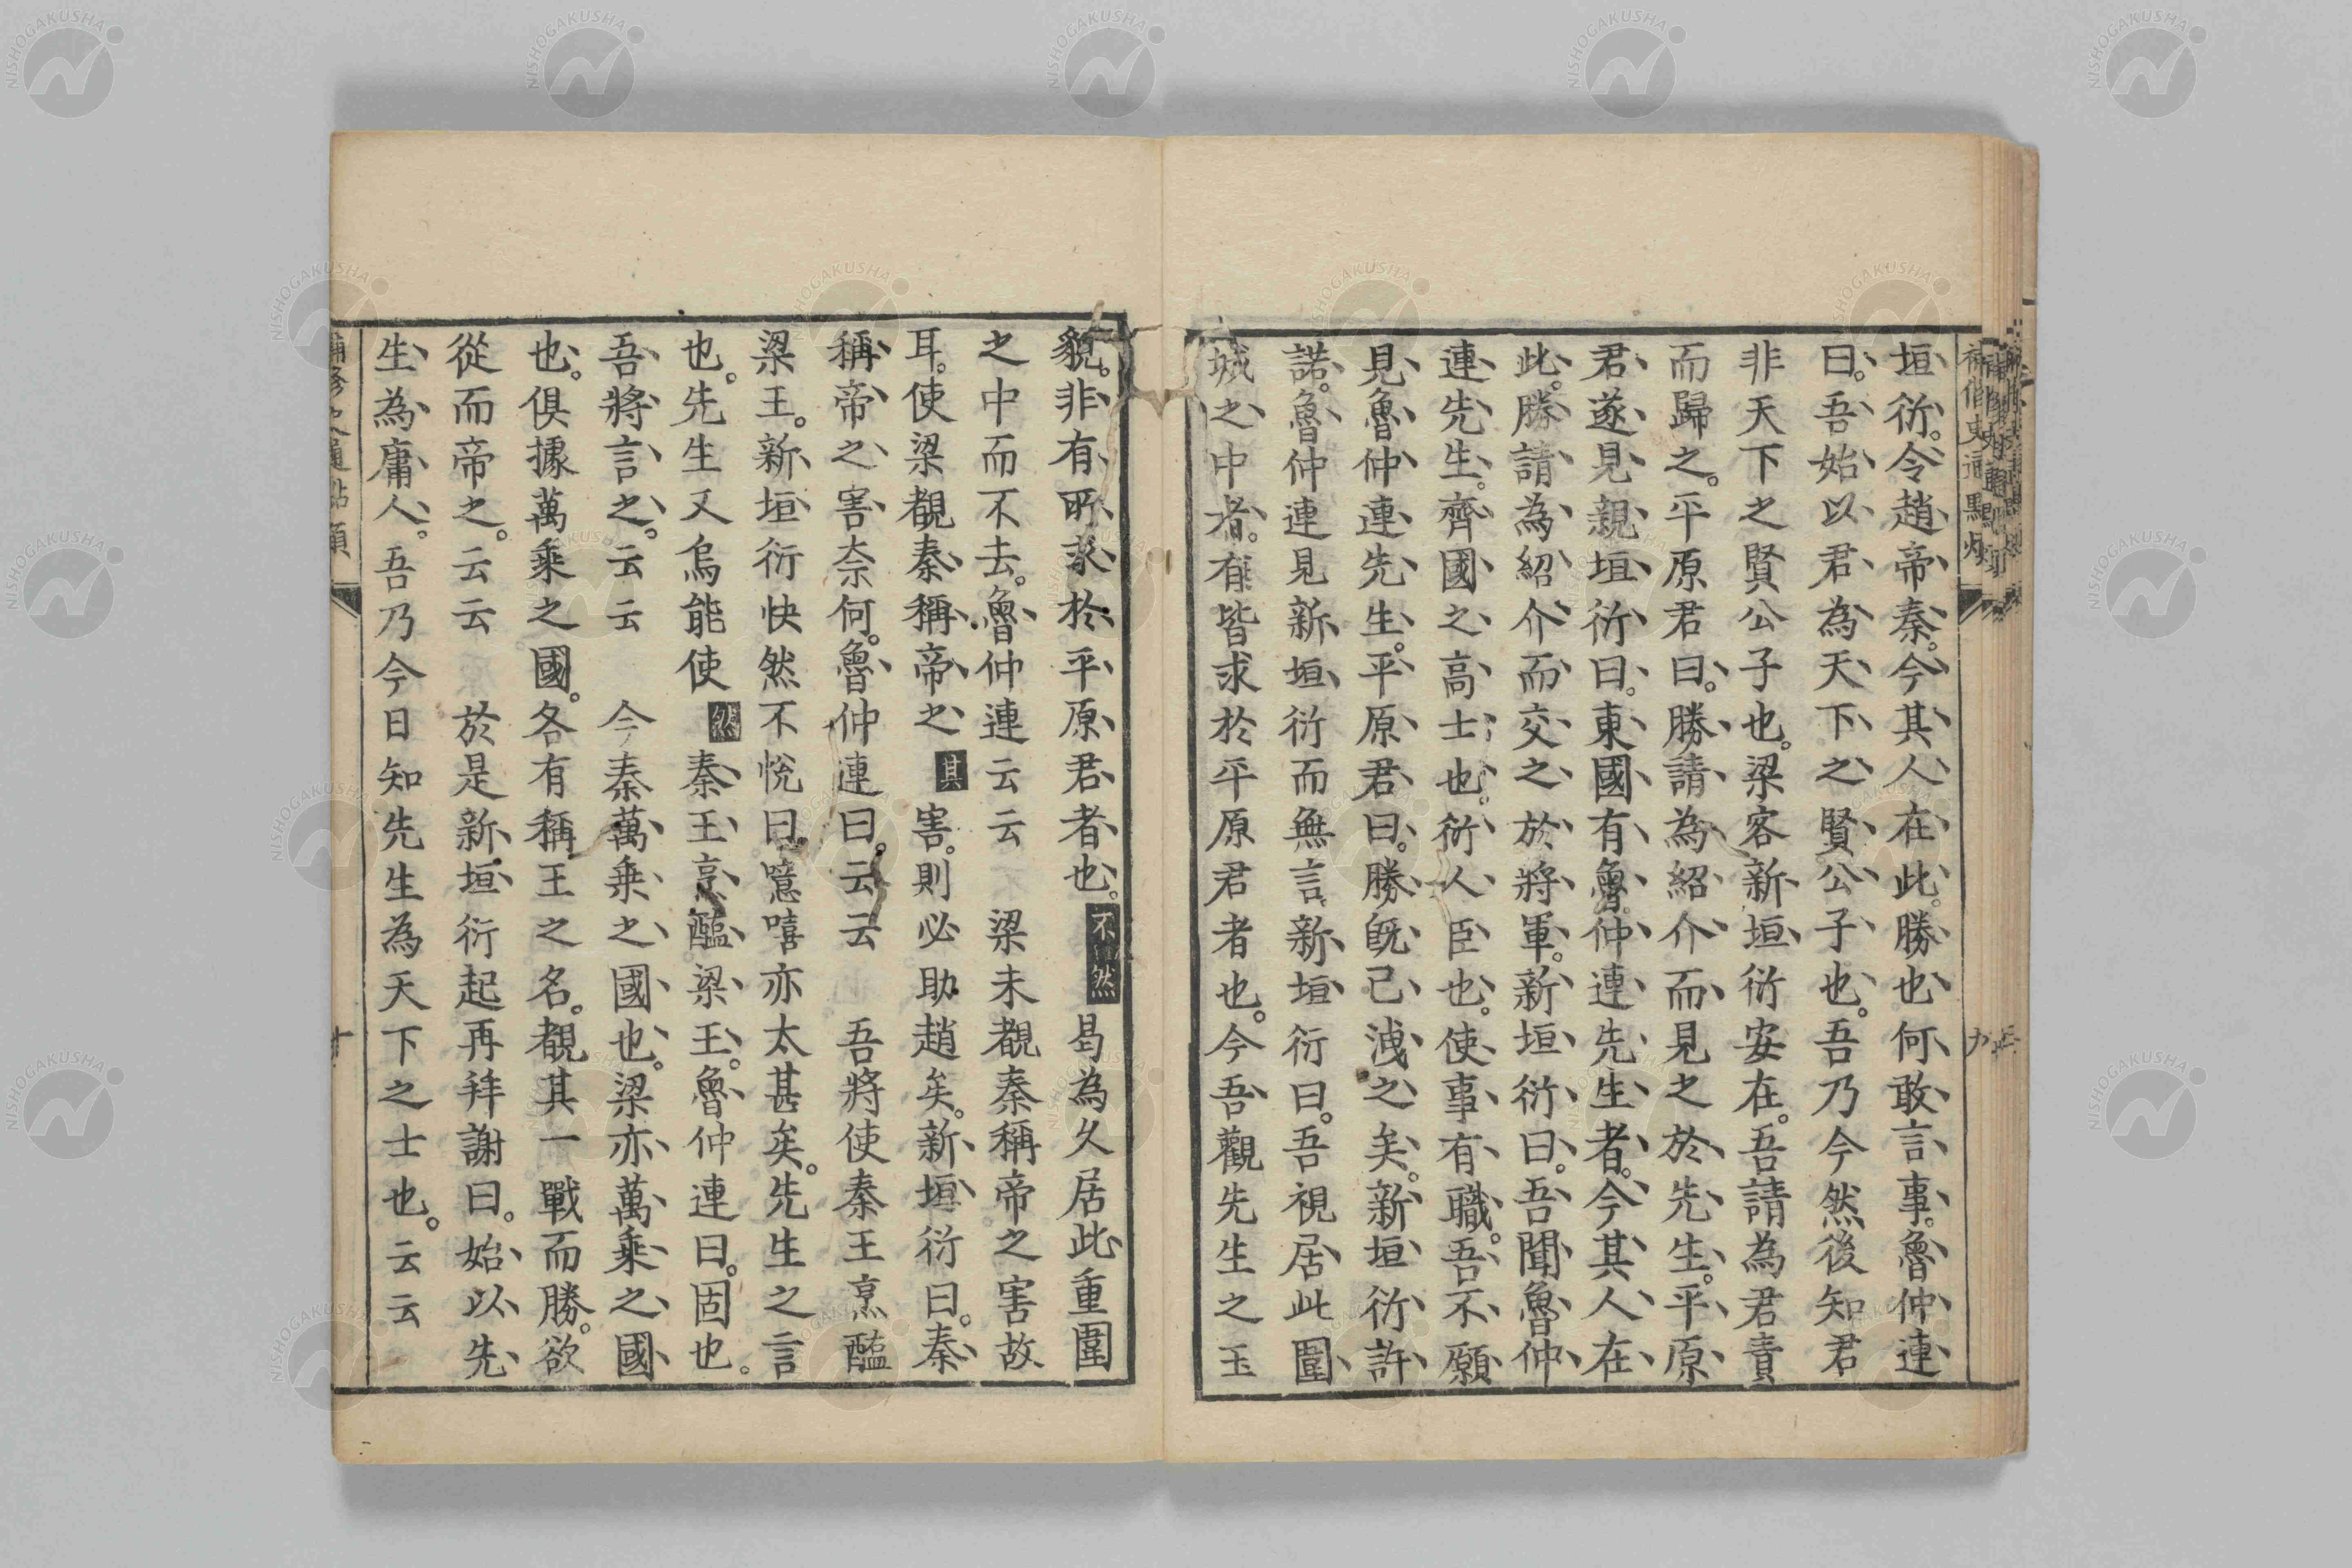 垣衍。令趙帝秦。今其人在此。勝也何敢言事。魯仲連
曰。吾始以君為天下之賢公子也。吾乃今然後知君
非天下之賢公子也。梁客新垣衍安在。吾請為君責
而歸之。平原君曰。勝請為紹介而見之於先生。平原
君遂見親垣衍曰。東國有魯仲連先生者。今其人在
此。勝請為紹介而交之於將軍。新垣衍曰。吾聞魯仲
連先生。齊國之高士也。衍人臣也。使事有職。吾不願
見魯仲連先生。平原君曰。勝既已洩之矣。新垣衍許
諾。魯仲連見新垣衍而無言。新垣衍曰。吾視居此圍
城之中者。有皆求於平原君者也。今吾觀先生之玉
貌。非有所求於平原君者也。不然曷為久居此重圍
之中而不去。魯仲連云云 梁未覩秦稱帝之害故
耳。使梁覩秦稱帝之其害。則必助趙矣。新垣衍曰。秦
稱帝之害奈何。魯仲連曰。云云 吾將使秦王烹醢
梁王。新垣衍怏然不悅曰。噫嘻亦太甚矣。先生之言
也。先生又烏能使然秦王烹醢梁王。魯仲連曰。固也。
吾將言之。云云 今秦萬乘之國也。梁亦萬乘之國
也。俱據萬乘之國。各有稱王之名。覩其一戰而勝。欲
從而帝之。云云 於是新垣衍起再拜謝曰。始以先
生為庸人。吾乃今日知先生為天下之士也。云云
NISHOGAKUSHA